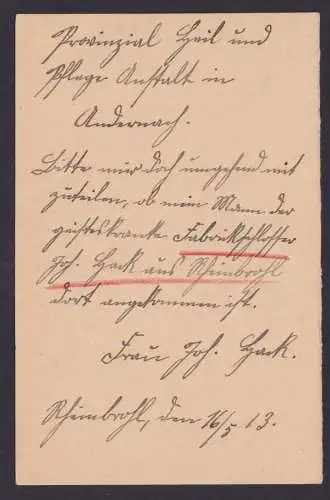 Provinzial Heil und
Pflege Anstalt in
Andernach.
Bitte mir doch umgehend mit
zuteilen, ob mein Mann der
geisteskranke Fabrikschlosser
Joh. Hack aus Rheinbrohl
dort angekommen ist.
Frau Joh. Hack.
Rheinbrohl, den 16/5 13.